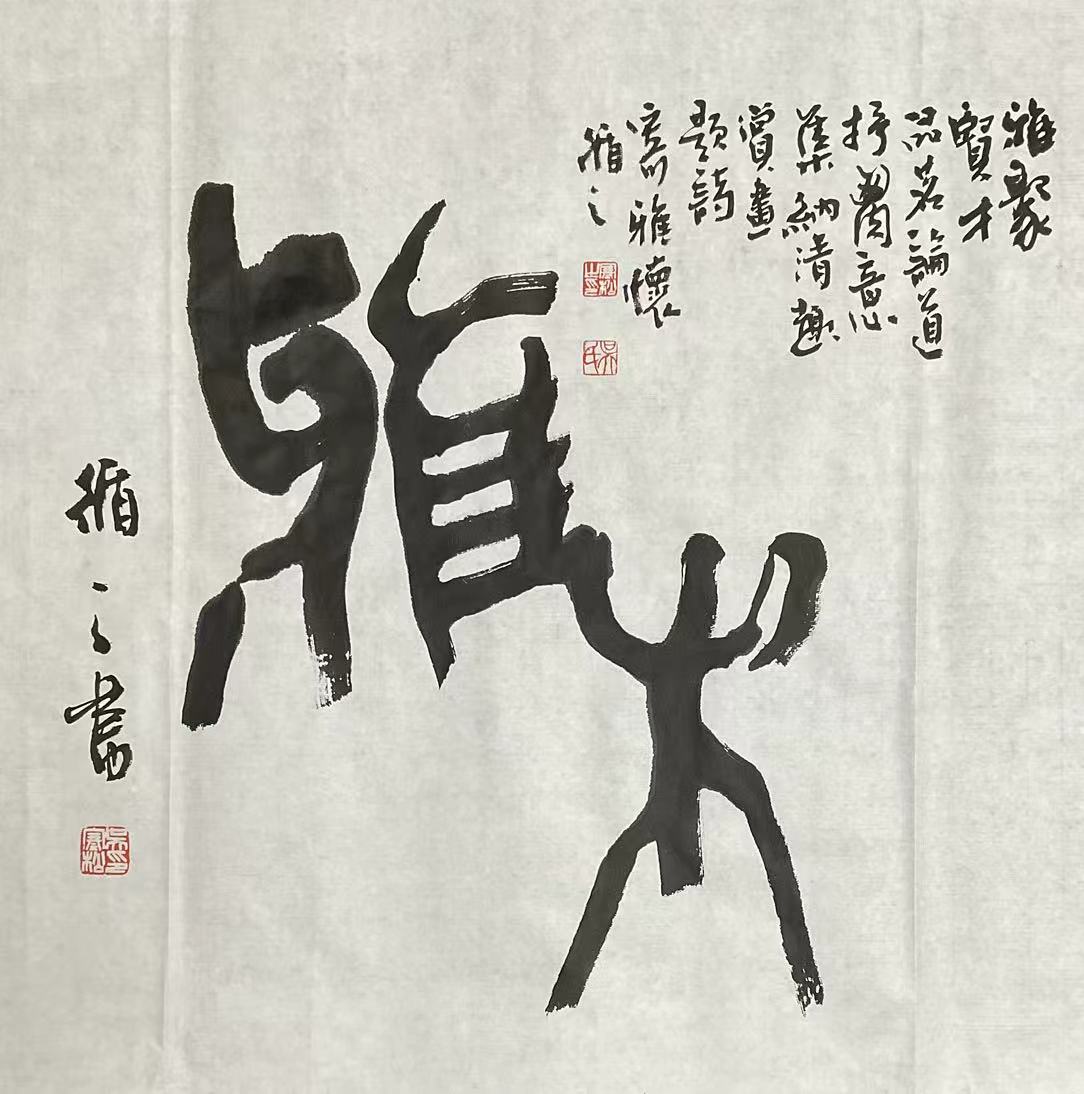 雅集
雅聚
賢才
品茗論道
抒意
集納清趣
賞畫
題詩
寄雅懷
循之
吳氏
循之書